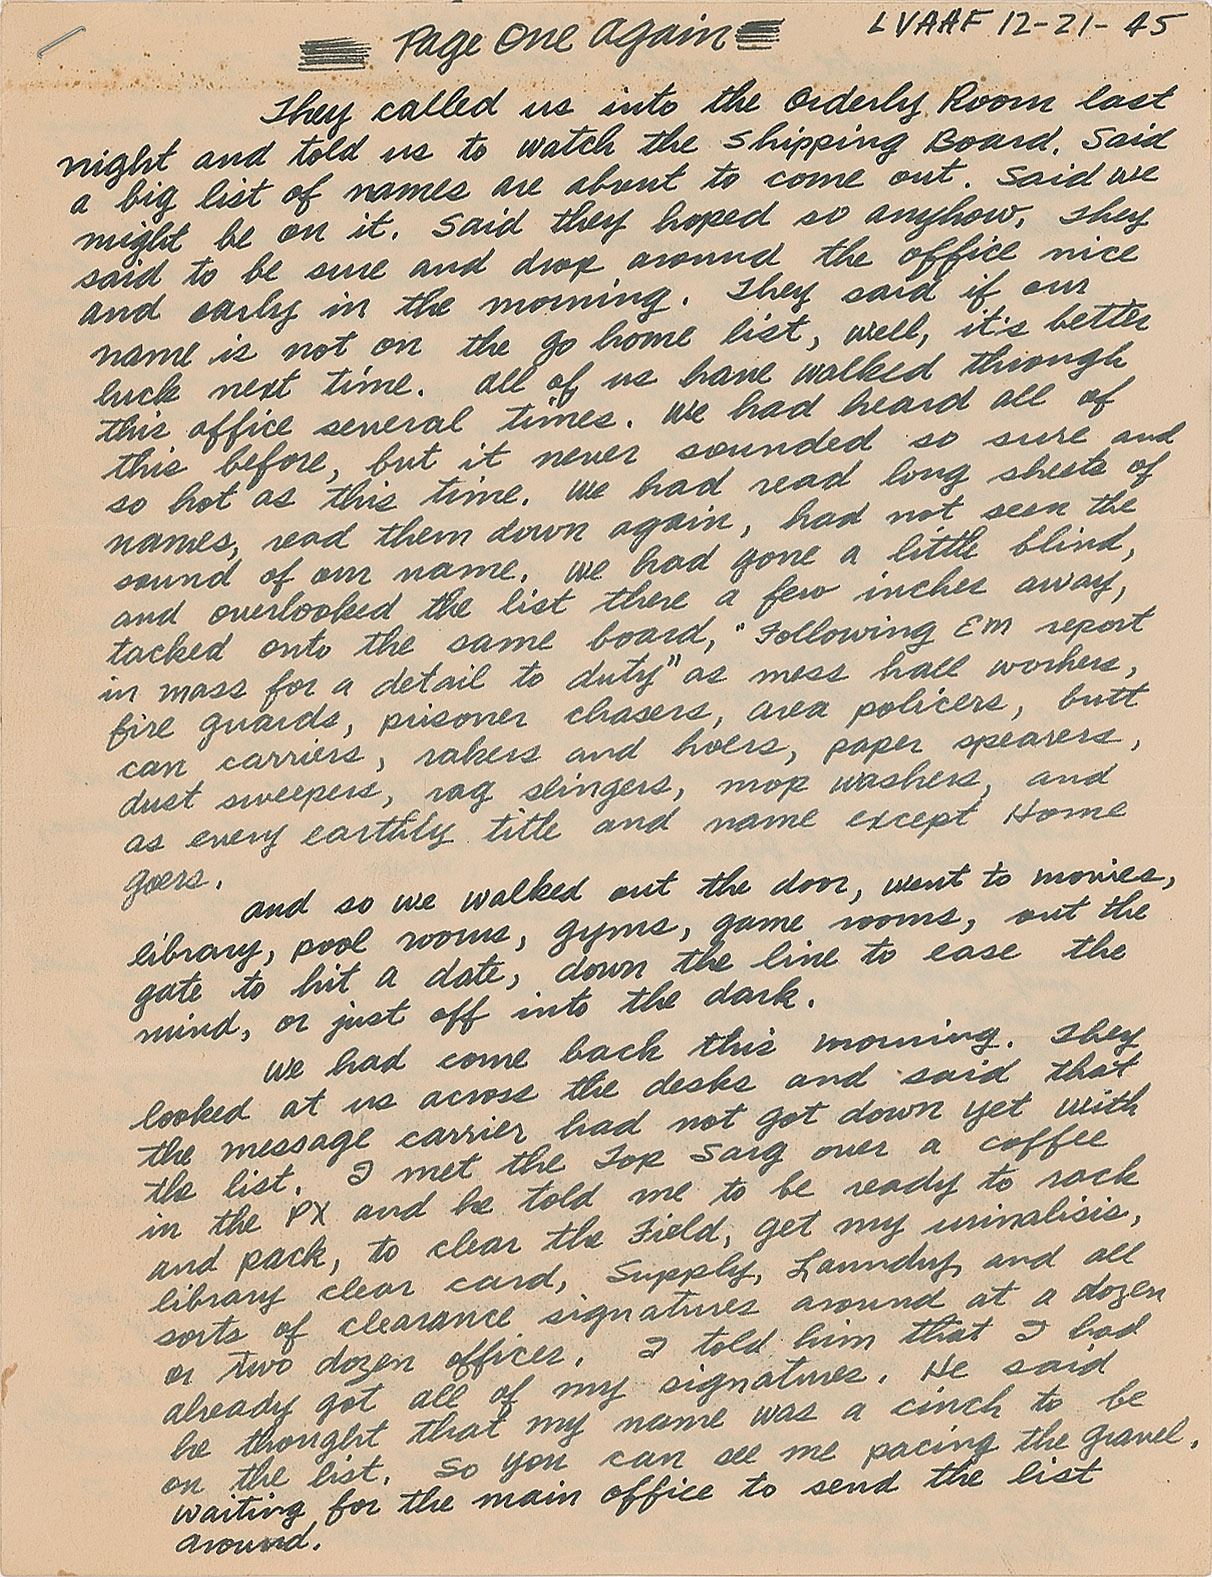 Page One Again
LVAAF 12-21-45
They called us into the Orderly Room last
night and told us to watch the Shipping Board. Said
a big list of names are about to come out. Said we
might be on it. Said they hoped so anyhow. They
said to be sure and drop around the office nice
and early in the morning. They said if our
name is not on the go home list, well, it's better
luck next time. All of us have walked through
this office several times. We had heard all of
this before, but it never sounded so sure and
so hot as this time. We had read long sheets of
names, read them down again, had not seen the
sound of our name. We had gone a little blind,
and overlooked the list there a few inches away,
tacked onto the same board, "Following EM report
in mass for a detail to duty" as mess hall workers,
fire guards, prisoner chasers, area policers, butt
can carriers, rakers and hoers, paper spearers,
dust sweepers, rag slingers, mop washers, and
as every earthly title and name except Home
goers.
And so we walked out the door, went to movies,
library, pool rooms, gyms, game rooms, out the
gate to hit a date, down the line to ease the
mind, or just off into the dark.
We had come back this morning. They
looked at us across the desks and said that
the message carrier had not got down yet with
the list. I met the Top Sarg over a coffee
in the PX and he told me to be ready to rack
and pack, to clear the Field, get my urinalisis,
library clear card, Supply, Laundry, and all
sorts of clearance signatures around at a dozen
or two dozen offices. I told him that I had
already got all of my signatures. He said
he thought that my name was a cinch to be
on the list. So you can see me pacing the gravel.
waiting for the main office to send the list
around.